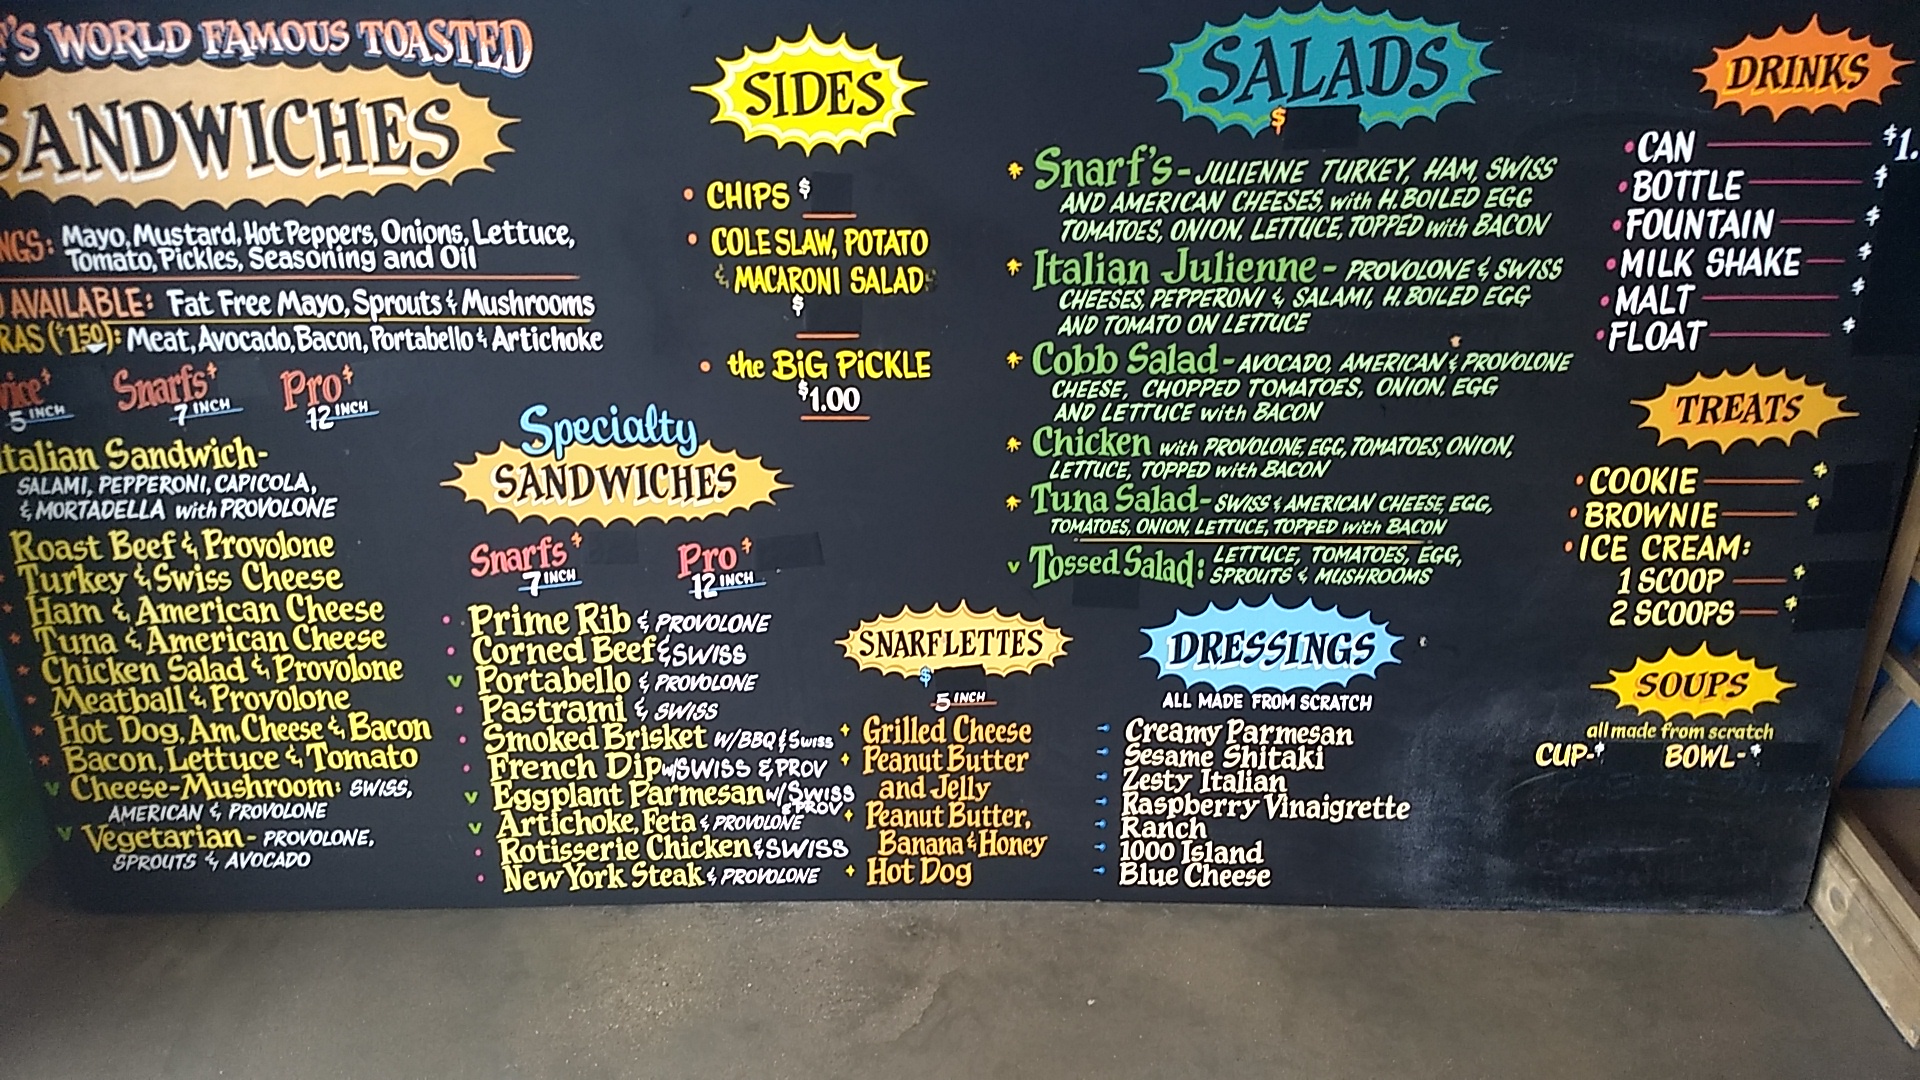 'S WORLD FAMOUS TOASTED
SANDWICHES
NGS: Mayo, Mustard, Hot Peppers, Onions, Lettuce,
Tomato, Pickles, Seasoning and Oil
AVAILABLE: Fat Free Mayo, Sprouts & Mushrooms
RAS ($1.50): Meat, Avocado, Bacon, Portabello & Artichoke
5 INCH
Snarfs $
7 INCH
Pro $
12 INCH
Italian Sandwich-
SALAMI, PEPPERONI, CAPICOLA,
& MORTADELLA with PROVOLONE
Roast Beef & Provolone
Turkey & Swiss Cheese
Ham & American Cheese
Tuna & American Cheese
Chicken Salad & Provolone
Meatball & Provolone
Hot Dog, Am. Cheese & Bacon
Bacon, Lettuce & Tomato
v Cheese-Mushroom: SWISS,
AMERICAN & PROVOLONE
v Vegetarian - PROVOLONE,
SPROUTS & AVOCADO
Specialty
SANDWICHES
Snarfs $
7 INCH
Pro $
12 INCH
Prime Rib & PROVOLONE
Corned Beef & SWISS
v Portabello & PROVOLONE
Pastrami & SWISS
Smoked Brisket W/BBQ & Swiss
French Dip w/SWISS & PROV
v Eggplant Parmesan w/SWISS
& PROV
v Artichoke, Feta & PROVOLONE
Rotisserie Chicken & SWISS
New York Steak & PROVOLONE
SIDES
CHIPS $
COLE SLAW, POTATO
& MACARONI SALAD
$
the BiG PiCKLE
$1.00
SNARFLETTES
$
5 INCH
Grilled Cheese
Peanut Butter
and Jelly
Peanut Butter,
Banana & Honey
Hot Dog
SALADS
$
Snarf's - JULIENNE TURKEY, HAM, SWISS
AND AMERICAN CHEESES, with H. BOILED EGG
TOMATOES, ONION, LETTUCE, TOPPED with BACON
Italian Julienne - PROVOLONE & SWISS
CHEESES, PEPPERONI & SALAMI, H. BOILED EGG
AND TOMATO ON LETTUCE
Cobb Salad - AVOCADO, AMERICAN & PROVOLONE
CHEESE, CHOPPED TOMATOES, ONION, EGG
AND LETTUCE with BACON
Chicken with PROVOLONE, EGG, TOMATOES, ONION,
LETTUCE, TOPPED with BACON
Tuna Salad - SWISS & AMERICAN CHEESE, EGG,
TOMATOES, ONION, LETTUCE, TOPPED with BACON
v Tossed Salad: LETTUCE, TOMATOES, EGG,
SPROUTS & MUSHROOMS
DRESSINGS
ALL MADE FROM SCRATCH
Creamy Parmesan
Sesame Shitaki
Zesty Italian
Raspberry Vinaigrette
Ranch
1000 Island
Blue Cheese
DRINKS
CAN $1.
BOTTLE $
FOUNTAIN $
MILK SHAKE $
MALT $
FLOAT $
TREATS
COOKIE $
BROWNIE $
ICE CREAM:
1 SCOOP $
2 SCOOPS $
SOUPS
all made from scratch
CUP-$ BOWL-$